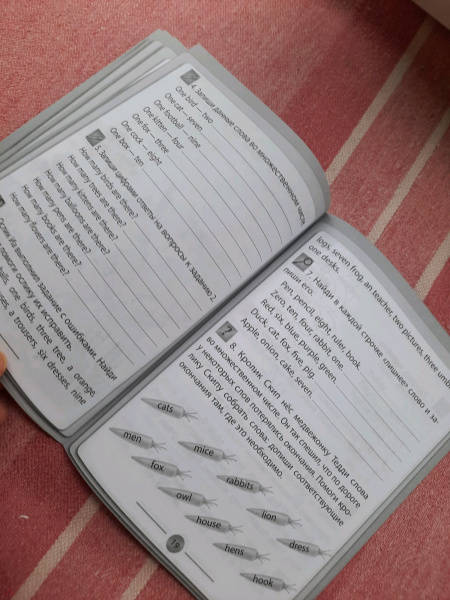 4. Запиши данные слова во множественном числе.
One bird — two
One cat — seven
One football — nine
One kitten — four
One fox — three
One cock — eight
One box — ten
5. Запиши цифрами ответы на вопросы к заданию 2.
How many birds are there?
How many trees are there?
How many kittens are there?
How many balloons are there?
How many pens are there?
How many books are there?
How many flowers are there?
выполнил задание с ошибками. Найди
исправить.
one birds, three tree, a orange
a trousers, six dresses, nine
logs, seven frog, an teacher, two pictures, three
one desks.
7. Найди в каждой строчке «лишнее» слово и за-
пиши его.
Pen, pencil, eight, ruler, book.
Zero, ten, four, rabbit, one.
Red, six, blue, purple, green.
Duck, cat, fox, five, pig.
Apple, onion, cake, seven.
8. Кролик Скип нёс медвежонку Тедди слова
во множественном числе. Он так спешил, что по дороге
у некоторых слов потерялись окончания. Помоги кро-
лику Скипу собрать слова: допиши соответствующие
окончания там, где это необходимо.
cats
men
mice
fox
rabbits
owl
lion
house
dress
hens
hook